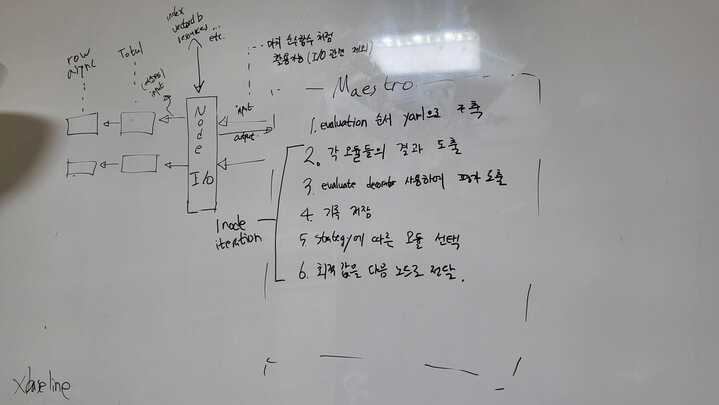 index
vectordb
resources...
etc.
row
async
Total
(async)
input
Node
I/O
마치 순수함수처럼
활용가능 (I/O 관련 제외)
input
output
Maestro
1. evaluation 순서 yaml으로 구축
2. 각 모듈들의 결과 도출
3. evaluate decorator 사용하여 평가 도출
4. 기록 저장
5. Strategy에 따른 모듈 선택
6. 최적 값을 다음 노드로 전달.
1 node
iteration
baseline